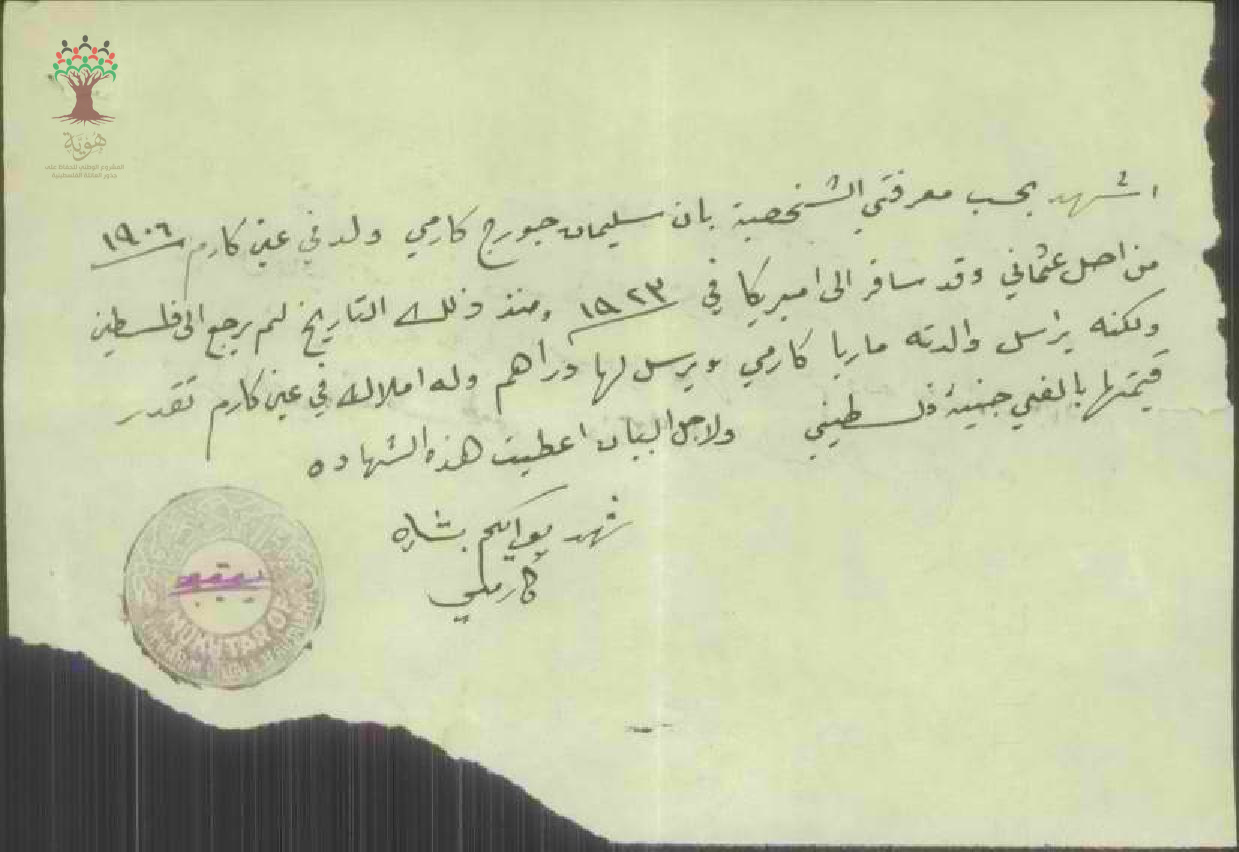 هُوِيَّة
المشروع الوطني للحفاظ على
جذور العائلة الفلسطينية
اشهد بحسب معرفتي الشخصية بان سليمان جورج كارمي ولد في عين كارم ١٩٠٦
من اصل عثماني وقد سافر الى اميريكا في ١٩٢٣ ومنذ ذلك التاريخ لم يرجع الى فلسطين
ولكنه يراسل والدته ماريا كارمي ويرسل لها دراهم وله املاك في عين كارم تقدر
قيمتها بالفي جنيه فلسطيني ولاجل البيان اعطيت هذه الشهاده
شهد يواكيم بشاره
كارمي
MUKHTAR OF